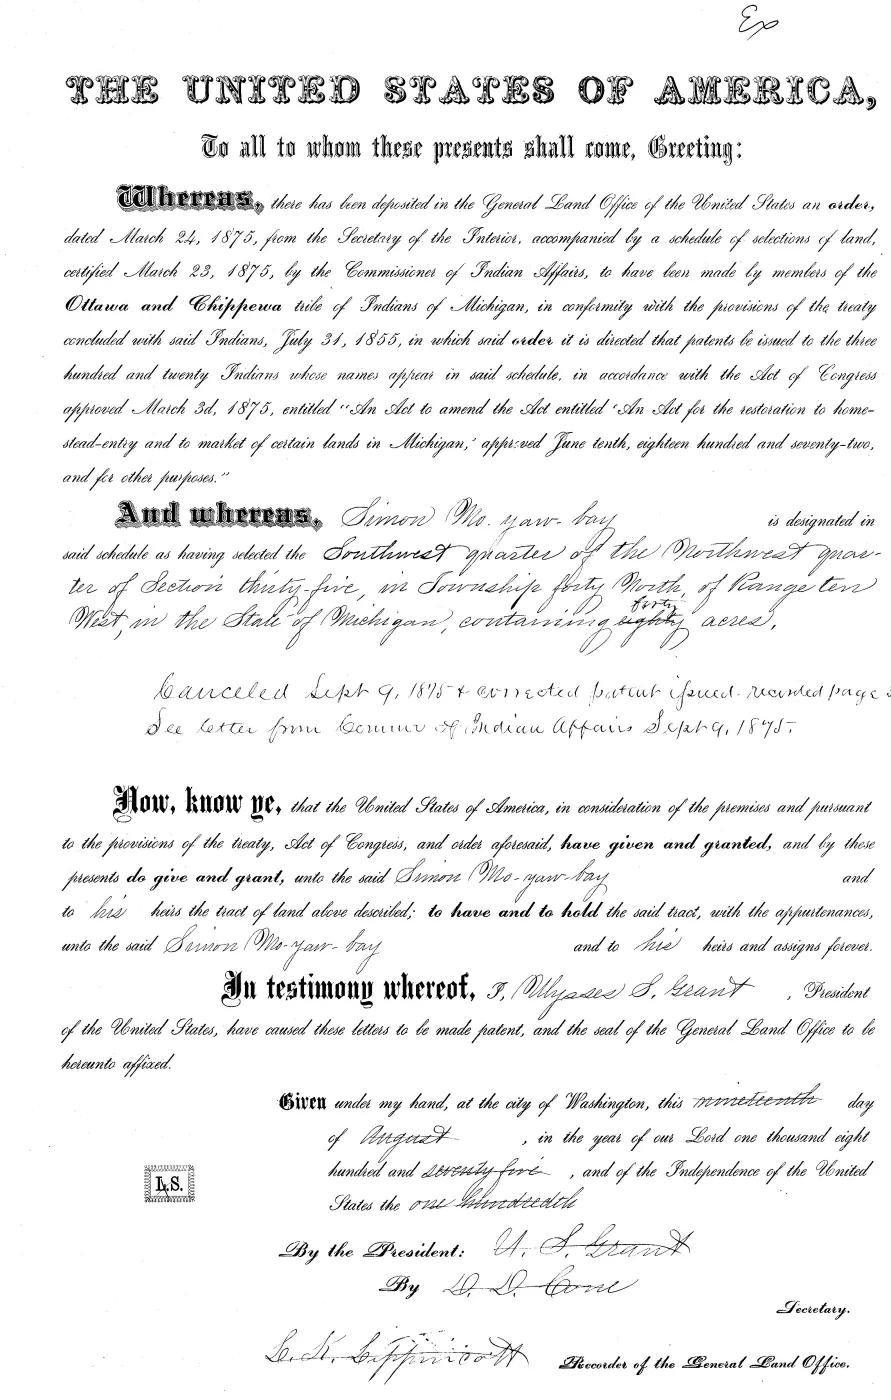 Ex
THE UNITED STATES OF AMERICA,
To all to whom these presents shall come, Greeting:
Whereas, there has been deposited in the General Land Office of the United States an order,
dated March 24, 1875, from the Secretary of the Interior, accompanied by a schedule of selections of land,
certified March 23, 1875, by the Commissioner of Indian Affairs, to have been made by members of the
Ottawa and Chippewa tribe of Indians of Michigan, in conformity with the provisions of the treaty
concluded with said Indians, July 31, 1855, in which said order it is directed that patents be issued to the three
hundred and twenty Indians whose names appear in said schedule, in accordance with the Act of Congress
approved March 3d, 1875, entitled "An Act to amend the Act entitled 'An Act for the restoration to home-
stead-entry and to market of certain lands in Michigan,' approved June tenth, eighteen hundred and seventy-two,
and for other purposes."
And whereas, Simon Mo-yaw-bay is designated in
said schedule as having selected the Southwest quarter of the Northwest quar-
ter of Section thirty-five, in Township forty North, of Range ten
forty
West, in the State of Michigan, containing eighty acres.
Canceled Sept 9, 1875 & corrected patent issued. recorded page
See letter from Commr of Indian Affairs Sept 9, 1875.
Now, know ye, that the United States of America, in consideration of the premises and pursuant
to the provisions of the treaty, Act of Congress, and order aforesaid, have given and granted, and by these
presents do give and grant, unto the said Simon Mo-yaw-bay and
to his heirs the tract of land above described; to have and to hold the said tract, with the appurtenances,
unto the said Simon Mo-yaw-bay and to his heirs and assigns forever.
In testimony whereof, I, Ulysses S. Grant, President
of the United States, have caused these letters to be made patent, and the seal of the General Land Office to be
hereunto affixed.
Given under my hand, at the city of Washington, this nineteenth day
of August, in the year of our Lord one thousand eight
hundred and seventy five, and of the Independence of the United
States the one hundredth
L.S.
By the President: U. S. Grant
By D. D. Cone
Secretary.
L. K. Lippincott Recorder of the General Land Office.